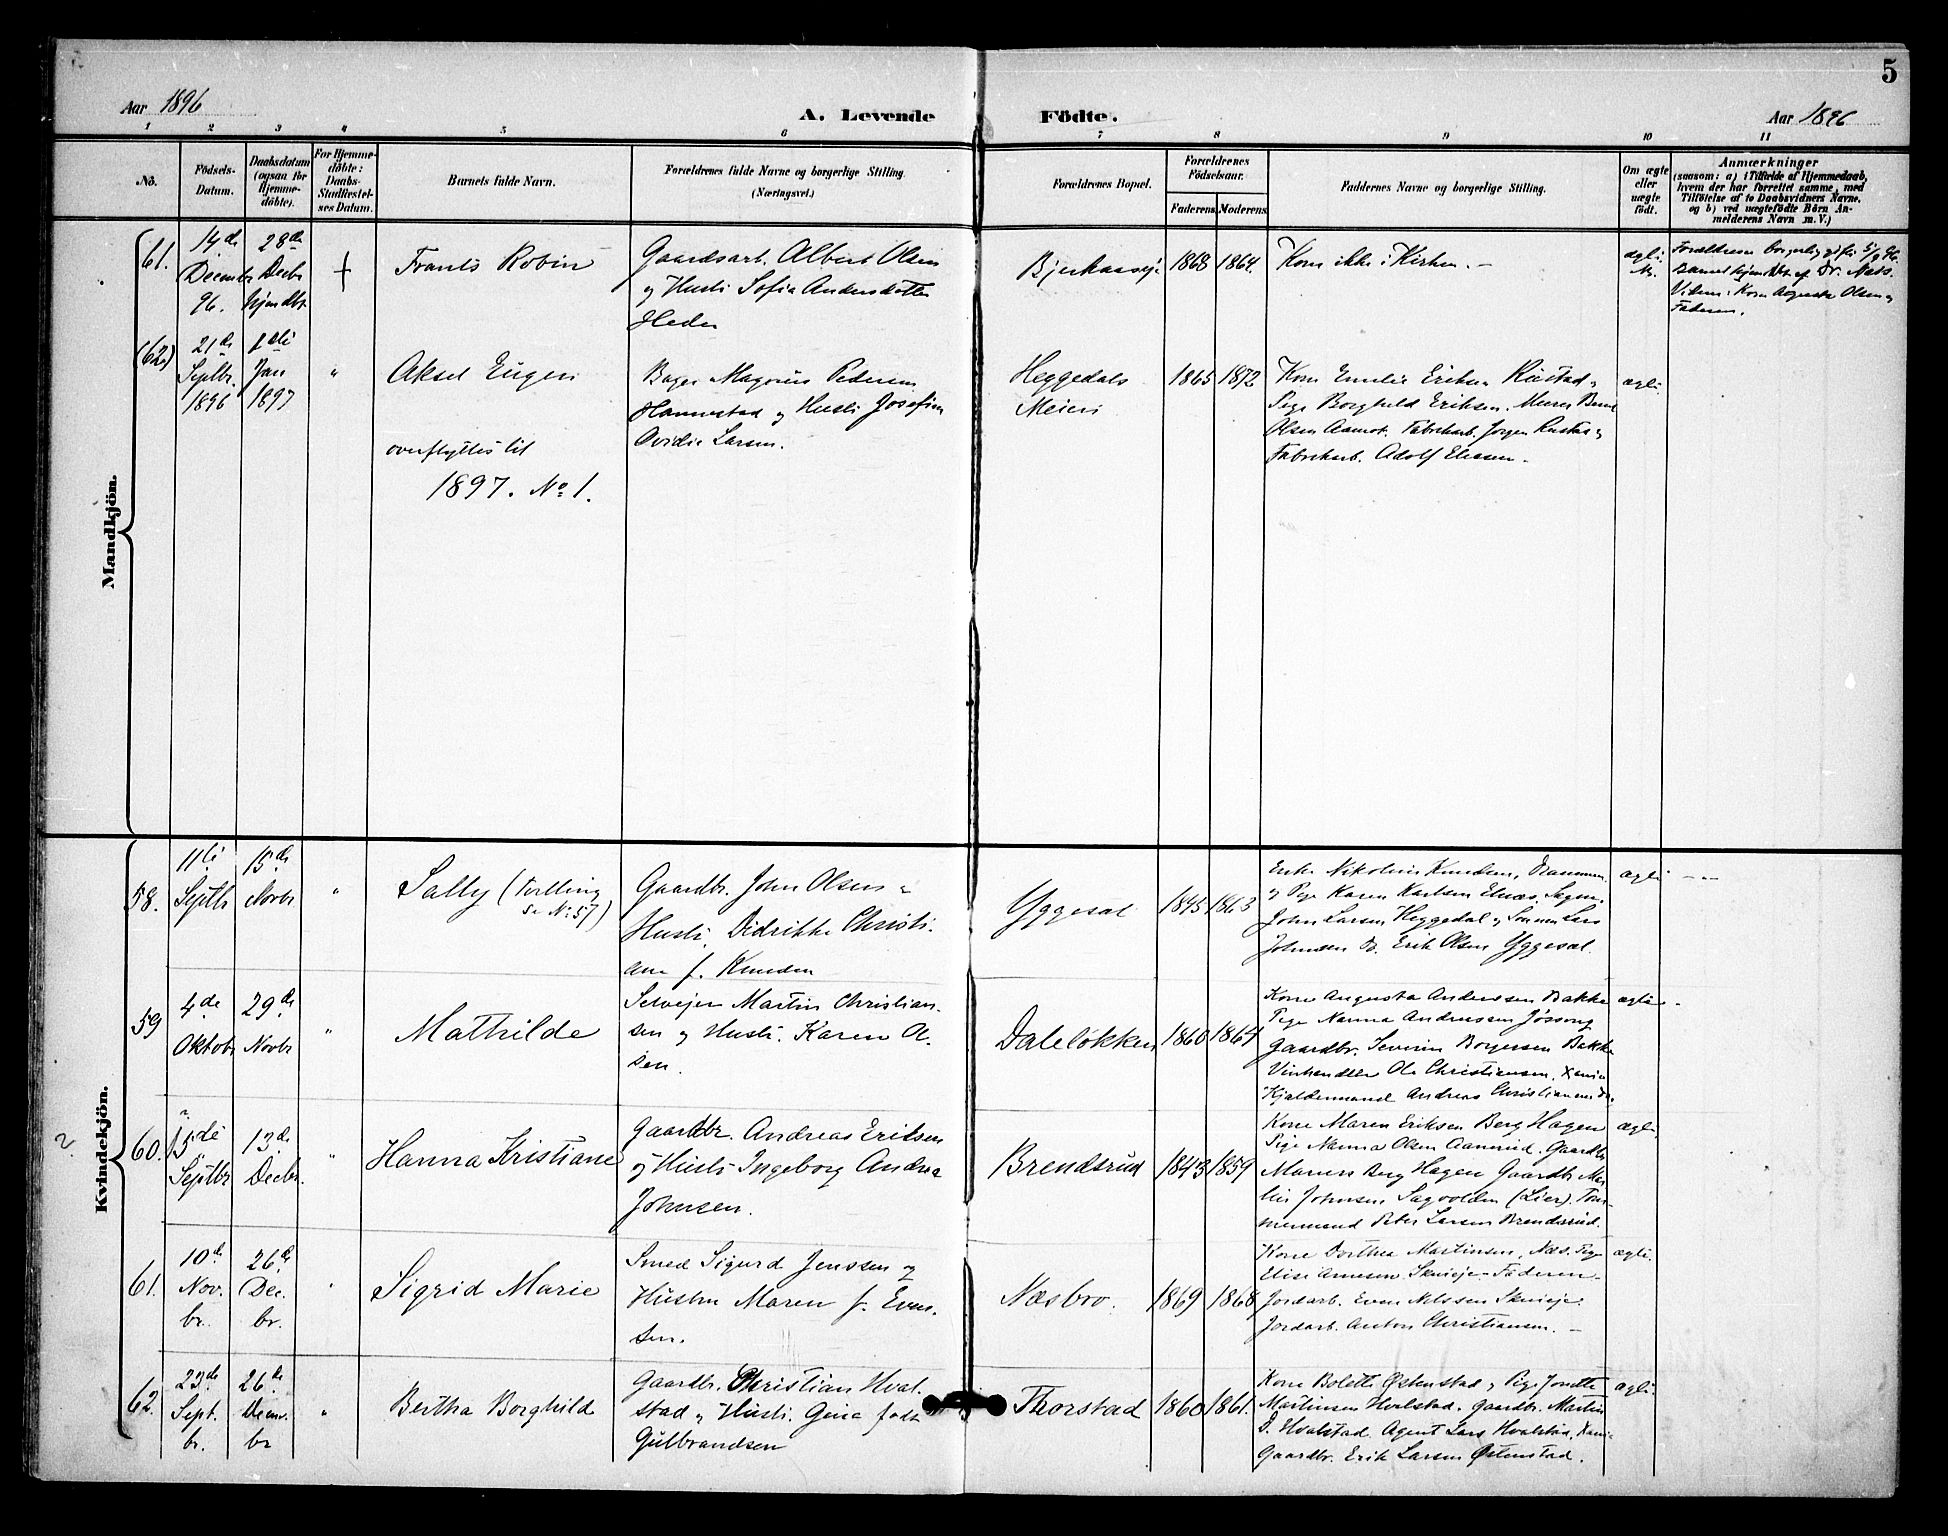 5
Aar 1896
A. Levende
Födte.
Aar 1896
1 2 3 4 5 6 7 8 9 10 11
No.
Födsels-
Datum.
Daabsdatum
(ogsaa for
Hjemme-
döbte).
For Hjemme-
döbte:
Daabs-
Stadfæstel-
ses Datum.
Barnets fulde Navn.
Forældrenes fulde Navne og borgerlige Stilling.
(Næringsvei.)
Forældrenes Bopæl.
Forældrenes
Födselsaar.
Faderens
Moderens
Faddernes Navne og borgerlige Stilling.
Om ægte
eller
uægte
födt.
Anmærkninger
(saasom: a) i Tilfælde af Hjemmedaab,
hvem der har forrettet samme, med
Tilföielse af to Daabsvidners Navne,
og b) ved uægtefödte Börn An-
melderens Navn m. V.)
Mandkjön.
61.
14de
Decembr
96.
28de
Decbr
hjemdbt.
+
Frants Robin
Gaardsarb. Albert Olsen
og Hustr. Sofia Andersdatter
Heder
1868
1864.
Kom ikke i Kirken. —
ægte
Forældrene borgerlig
Barnet hjemdbt. af Dr. Næss.
Vidner: Kone Auguste Olsen og
Faderen.
(62)
21de
Septbr.
1896
1ste
Jan
1897
"
Aksel Eugen
overflyttes til
1897. No 1.
Bager Magnus Pedersen
Hannestad og Hustr. Josefine
Ovidie Larsen.
Heggedals
Meieri
1865
1872
Kone Emilie Eriksen Rustad og
Pige Borghild Eriksen. Murer Bernt
Olsen Aamot. Fabrikarb. Jørgen Rustad og
Fabrikarb. Adolf Eliasen.
ægte
Kvindekjön.
58.
11te
Septbr
15de
Novbr
"
Sally (Tvilling
se No 57)
Gaardbr. John Olsen og
Hustr. Didrikke Christi-
ane f. Knudsen
Yggeset
1845
1863
Enke Nikoline Knudsen, Drammen
og Pige Karen Karlsen Elnæs.
John Larsen Heggedal og Sønnen Lars
Johnsen do. Erik Olsen Yggeset.
ægte
59
4de
Oktobr
29de
Novbr
"
Mathilde
Selveier Martin Christian-
sen og Hustr. Karen Ol-
sen.
Daleløkken
1860
1864
Kone Augusta Andersen Bakke
Pige Nanna Andreassen Jøssong
Gaardbr. Severin Borgersen Bakke
Vinhandler Ole Christiansen, Xania
Kjældermand Andreas Christiansen do.
ægte
60.
15de
Septbr
13de
Decbr.
"
Hanna Kristiane
Gaardbr. Andreas Eriksen
og Hustr. Ingeborg Andrea
Johnsen.
Brendsrud
1843
1859
Kone Maren Eriksen Berg Hagen
Pige Nanna Olsen Aamrud. Gaardbr.
Berg Hagen Gaardbr. Mar-
tin Johnsen Sagvolden (Lier). Tøm-
mermand Peter Larsen Brendsrud.
ægte
61.
10de
Nov.
br.
26de
Dec.
br.
"
Sigrid Marie
Smed Sigurd Jenssen og
Hustru Maren f. Even-
sen.
Næsbro.
1869
1868
Kone Dorthea Martinsen, Næs. Pige
Elise Arnesen Skuieje. Faderen.
Jordarb. Even Nilssen Skuieje.
Jordarb. Anton Christiansen. —
ægte
62.
23de
Sept.
br.
26de
Decm.
br
"
Bertha Borghild
Gaardbr. Christian Hval-
stad og Hustr. Gina født
Gulbrandsen
Thorstad
1860
1861.
Kone Bolette Østenstad og Pige Jonette
Martinsen Hvalstad. Gaardbr. Martin
D. Hvalstad. Agent Lars Hvalstad, Xania
Gaardbr. Erik Larsen Østenstad.
ægte